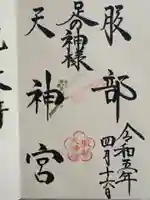 服部
足の神様
天神宮
令和五年
四月十六日